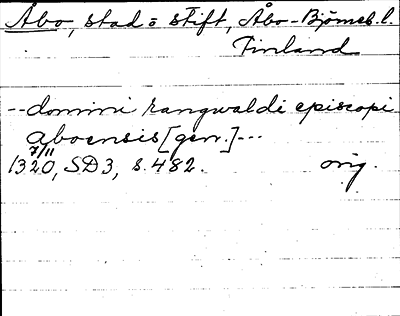 Åbo, stad o stift, Åbo-Björneb. l.
Finland
-- domini rangwaldi episcopi
aboensis [gen.] ---
7/11
1320, SD3, s. 482. orig.